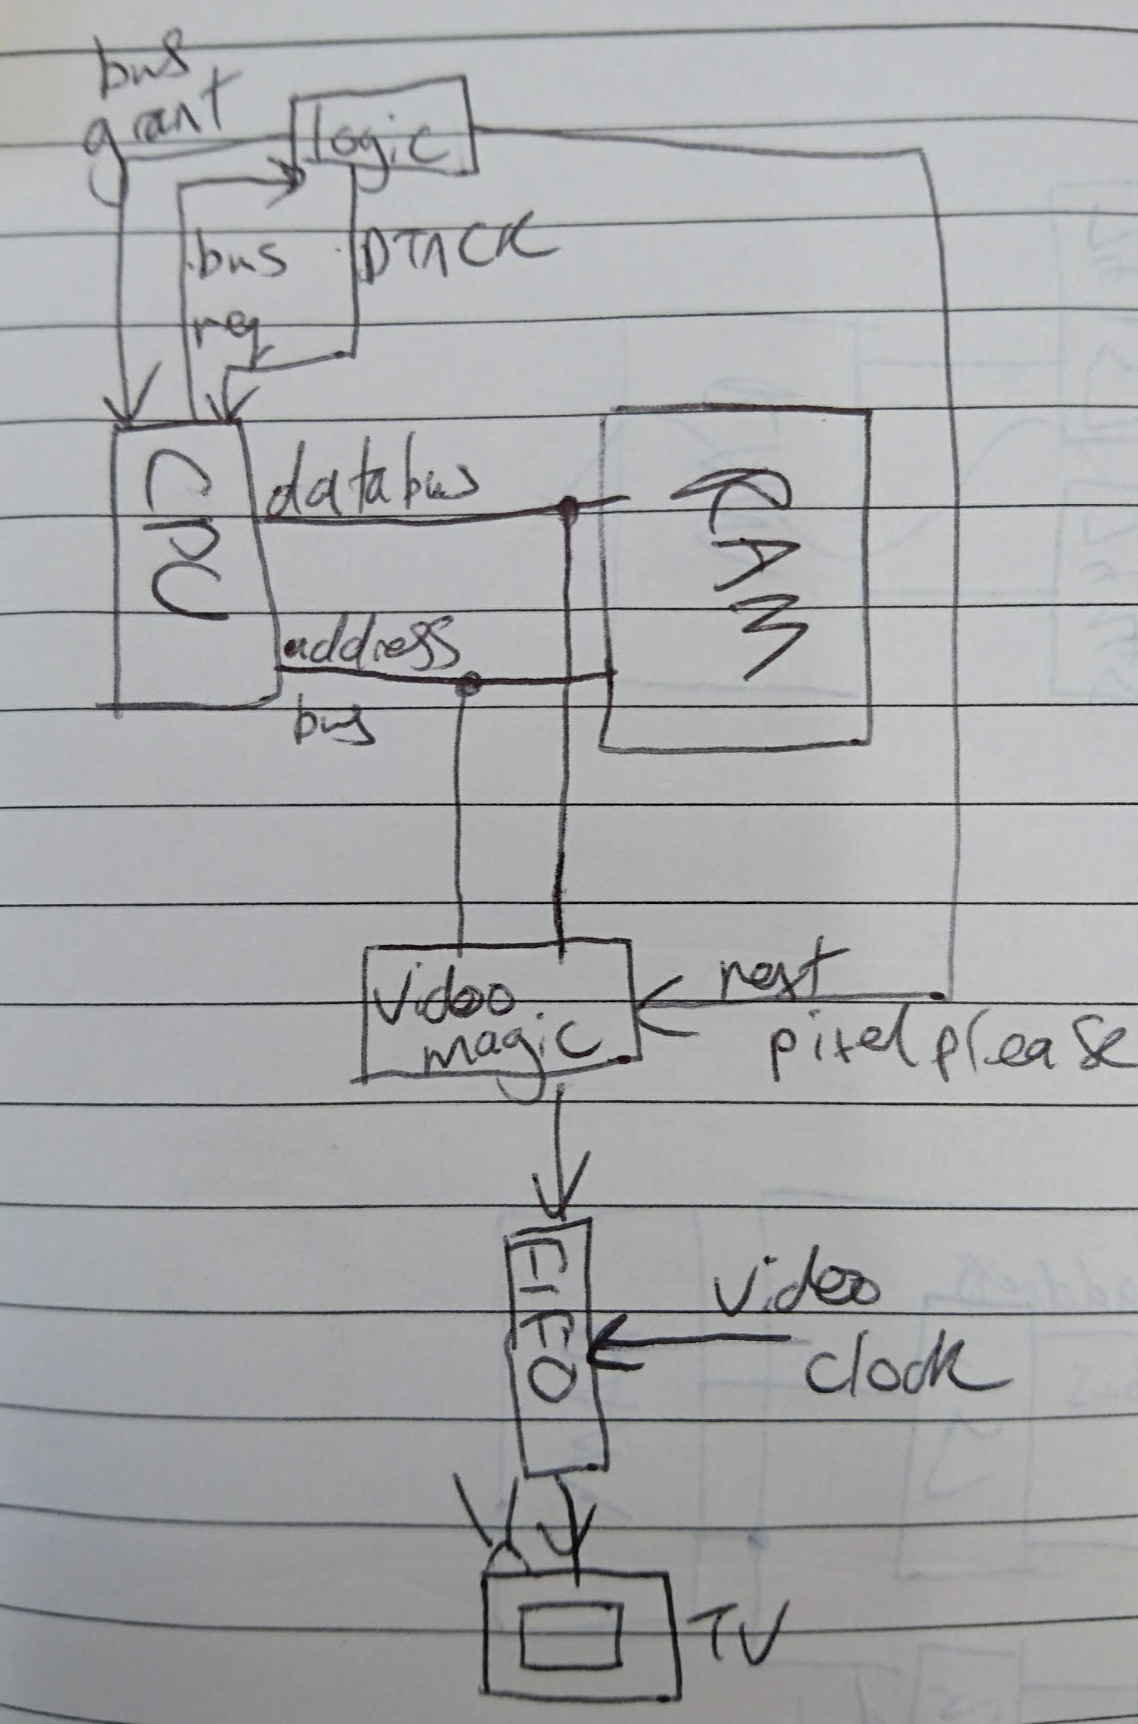 bus
grant
logic
bus
req
DTACK
CPU
databus
RAM
address
bus
video
magic
next
pixel please
FIFO
video
clock
TV